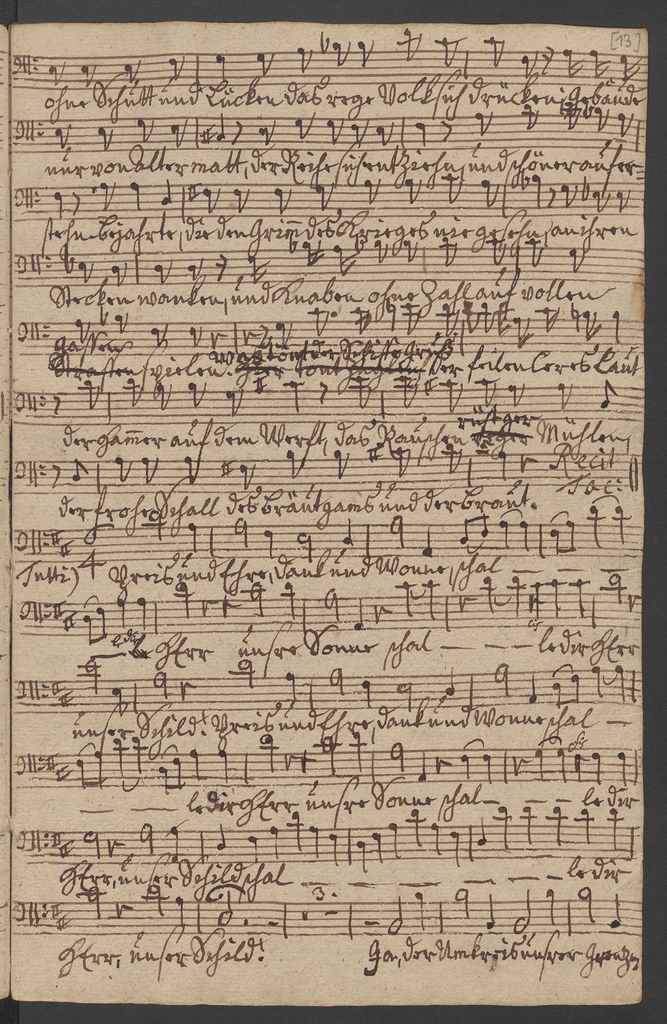 [13]
ohne Schutt und Lücken das rege Volk sich drücken; Gebäude
nur von Alter matt, der Reihe sich entziehn, und schöner aufer=
stehn bejahrte, die den Grim̅ des Krieges nie gesehn, an ihren
Stecken wanken, und Knaben ohne Zahl auf vollen
Gassen
Straßen spielen. Was tönt der Schiffe Gruß der feilen leres Laut
der Ham̅er auf dem Werft, das Rauschen rüst'ger Mühlen,
Recit
der frohe Schall des Bräutgams und der Braut. Tac:
Tutti) 4 Preis und Ehre, Dank und Wonne, schal — — —
le dir HErr unsre Sonne schal — — — le dir HErr
unser Schild! Preis und Ehre, Dank und Wonne schal —
— — — le dir HErr unsre Sonne schal — — — le dir
HErr, unser Schild schal — — — — — — le dir
3.
HErr, unser Schild! Ja, der Umkreis unsrer Grenzen